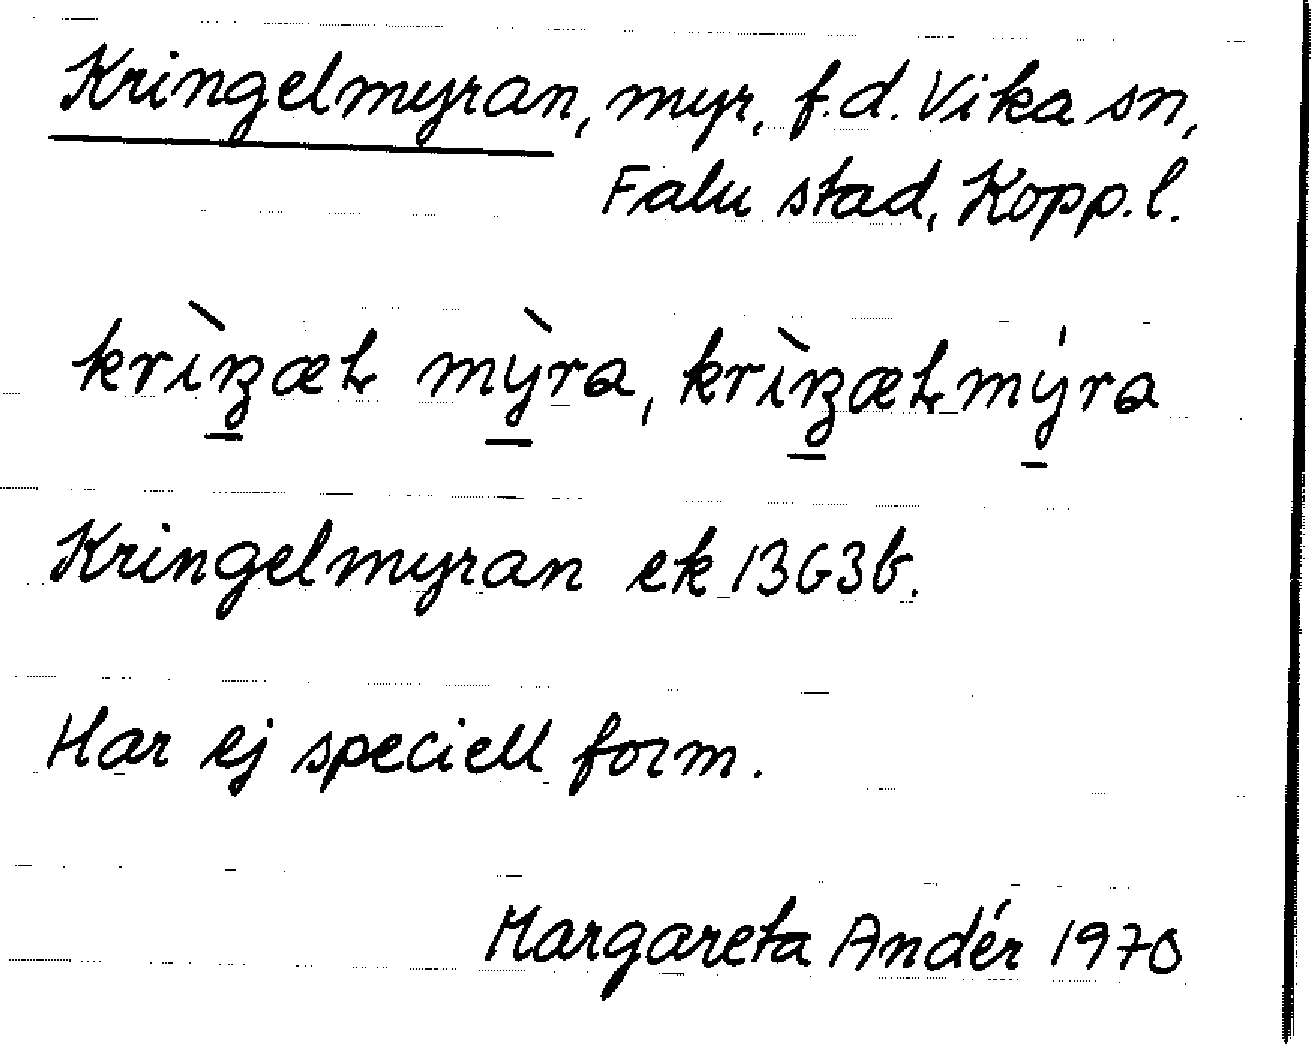 Kringelmyran, myr, f.d. Vika sn,
Falu stad, Kopp.l.
krìŋæɫ mỳra, krìŋæɫmýra
Kringelmyran ek 13G3b.
Har ej speciell form.
Margareta Andér 1970